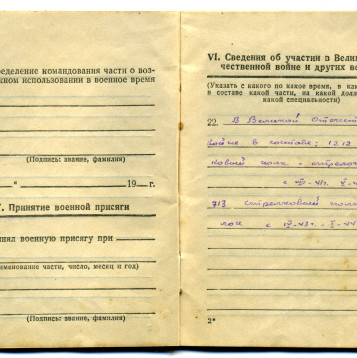 ределение командования части о воз-
жном использовании в военное время
(Подпись: звание, фамилия)
“ 19 г.
. Принятие военной присяги
нял военную присягу при
именование части, число, месяц и год)
(Подпись: звание, фамилия)
VI. Сведения об участии в Вели
чественной войне и других во
(Указать с какого по какое время, в как
в составе какой части, на какой долж
какой специальности)
22. В Великой Отечест
войне в составе: 1212
ковый полк - стрело
с
713 стрелковый полк
с
2*